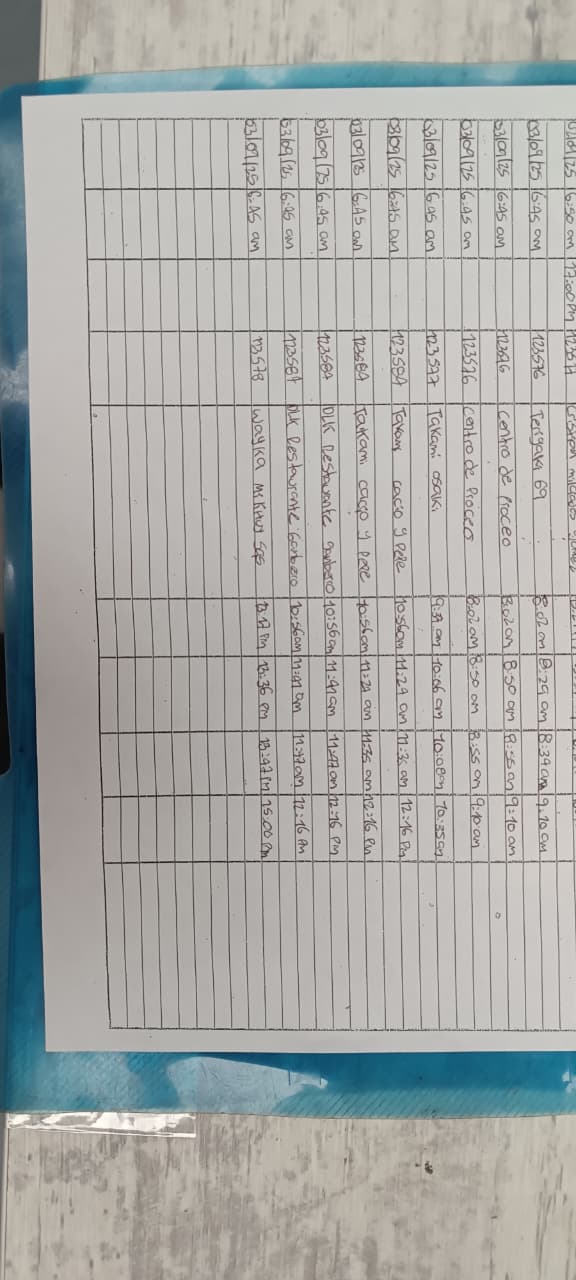 02/09/25 6:50 am 17:00 Pm 12357
03/09/25 6:45 am 123576 Teriyaki 69 8:02 am 8:29 am 8:39 am 9:10 am
03/09/25 6:45 am 123576 Centro de Proceo 8:02 am 8:50 am 8:55 am 9:10 am
03/09/25 6:45 am 123576 Centro de Proceo 8:02 am 8:50 am 8:55 am 9:10 am
03/09/25 6:45 am 123577 Takami osaki 9:31 am 10:06 am 10:08 am 10:35 am
03/09/25 6:45 am 123584 Takami cacio y Pepe 10:56 am 11:29 am 11:35 am 12:16 Pm
03/09/25 6:45 am 123584 Takami cacio y Pepe 10:56 am 11:29 am 11:35 am 12:16 Pm
03/09/25 6:45 am 123584 DLK Restaurante 10:56 am 11:41 am 11:47 am 12:16 Pm
03/09/25 6:45 am 123584 DLK Restaurante 10:56 am 11:41 am 11:47 am 12:16 Pm
03/09/25 6:45 am 123578 Wayka Sas 13:17 Pm 13:36 Pm 13:47 Pm 15:00 Pm